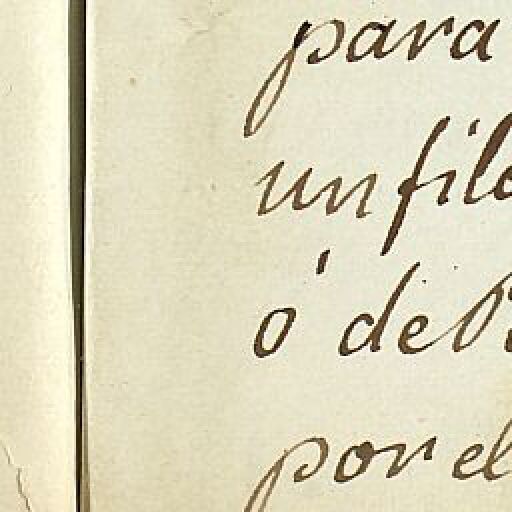 para
un filo
ó de
por el